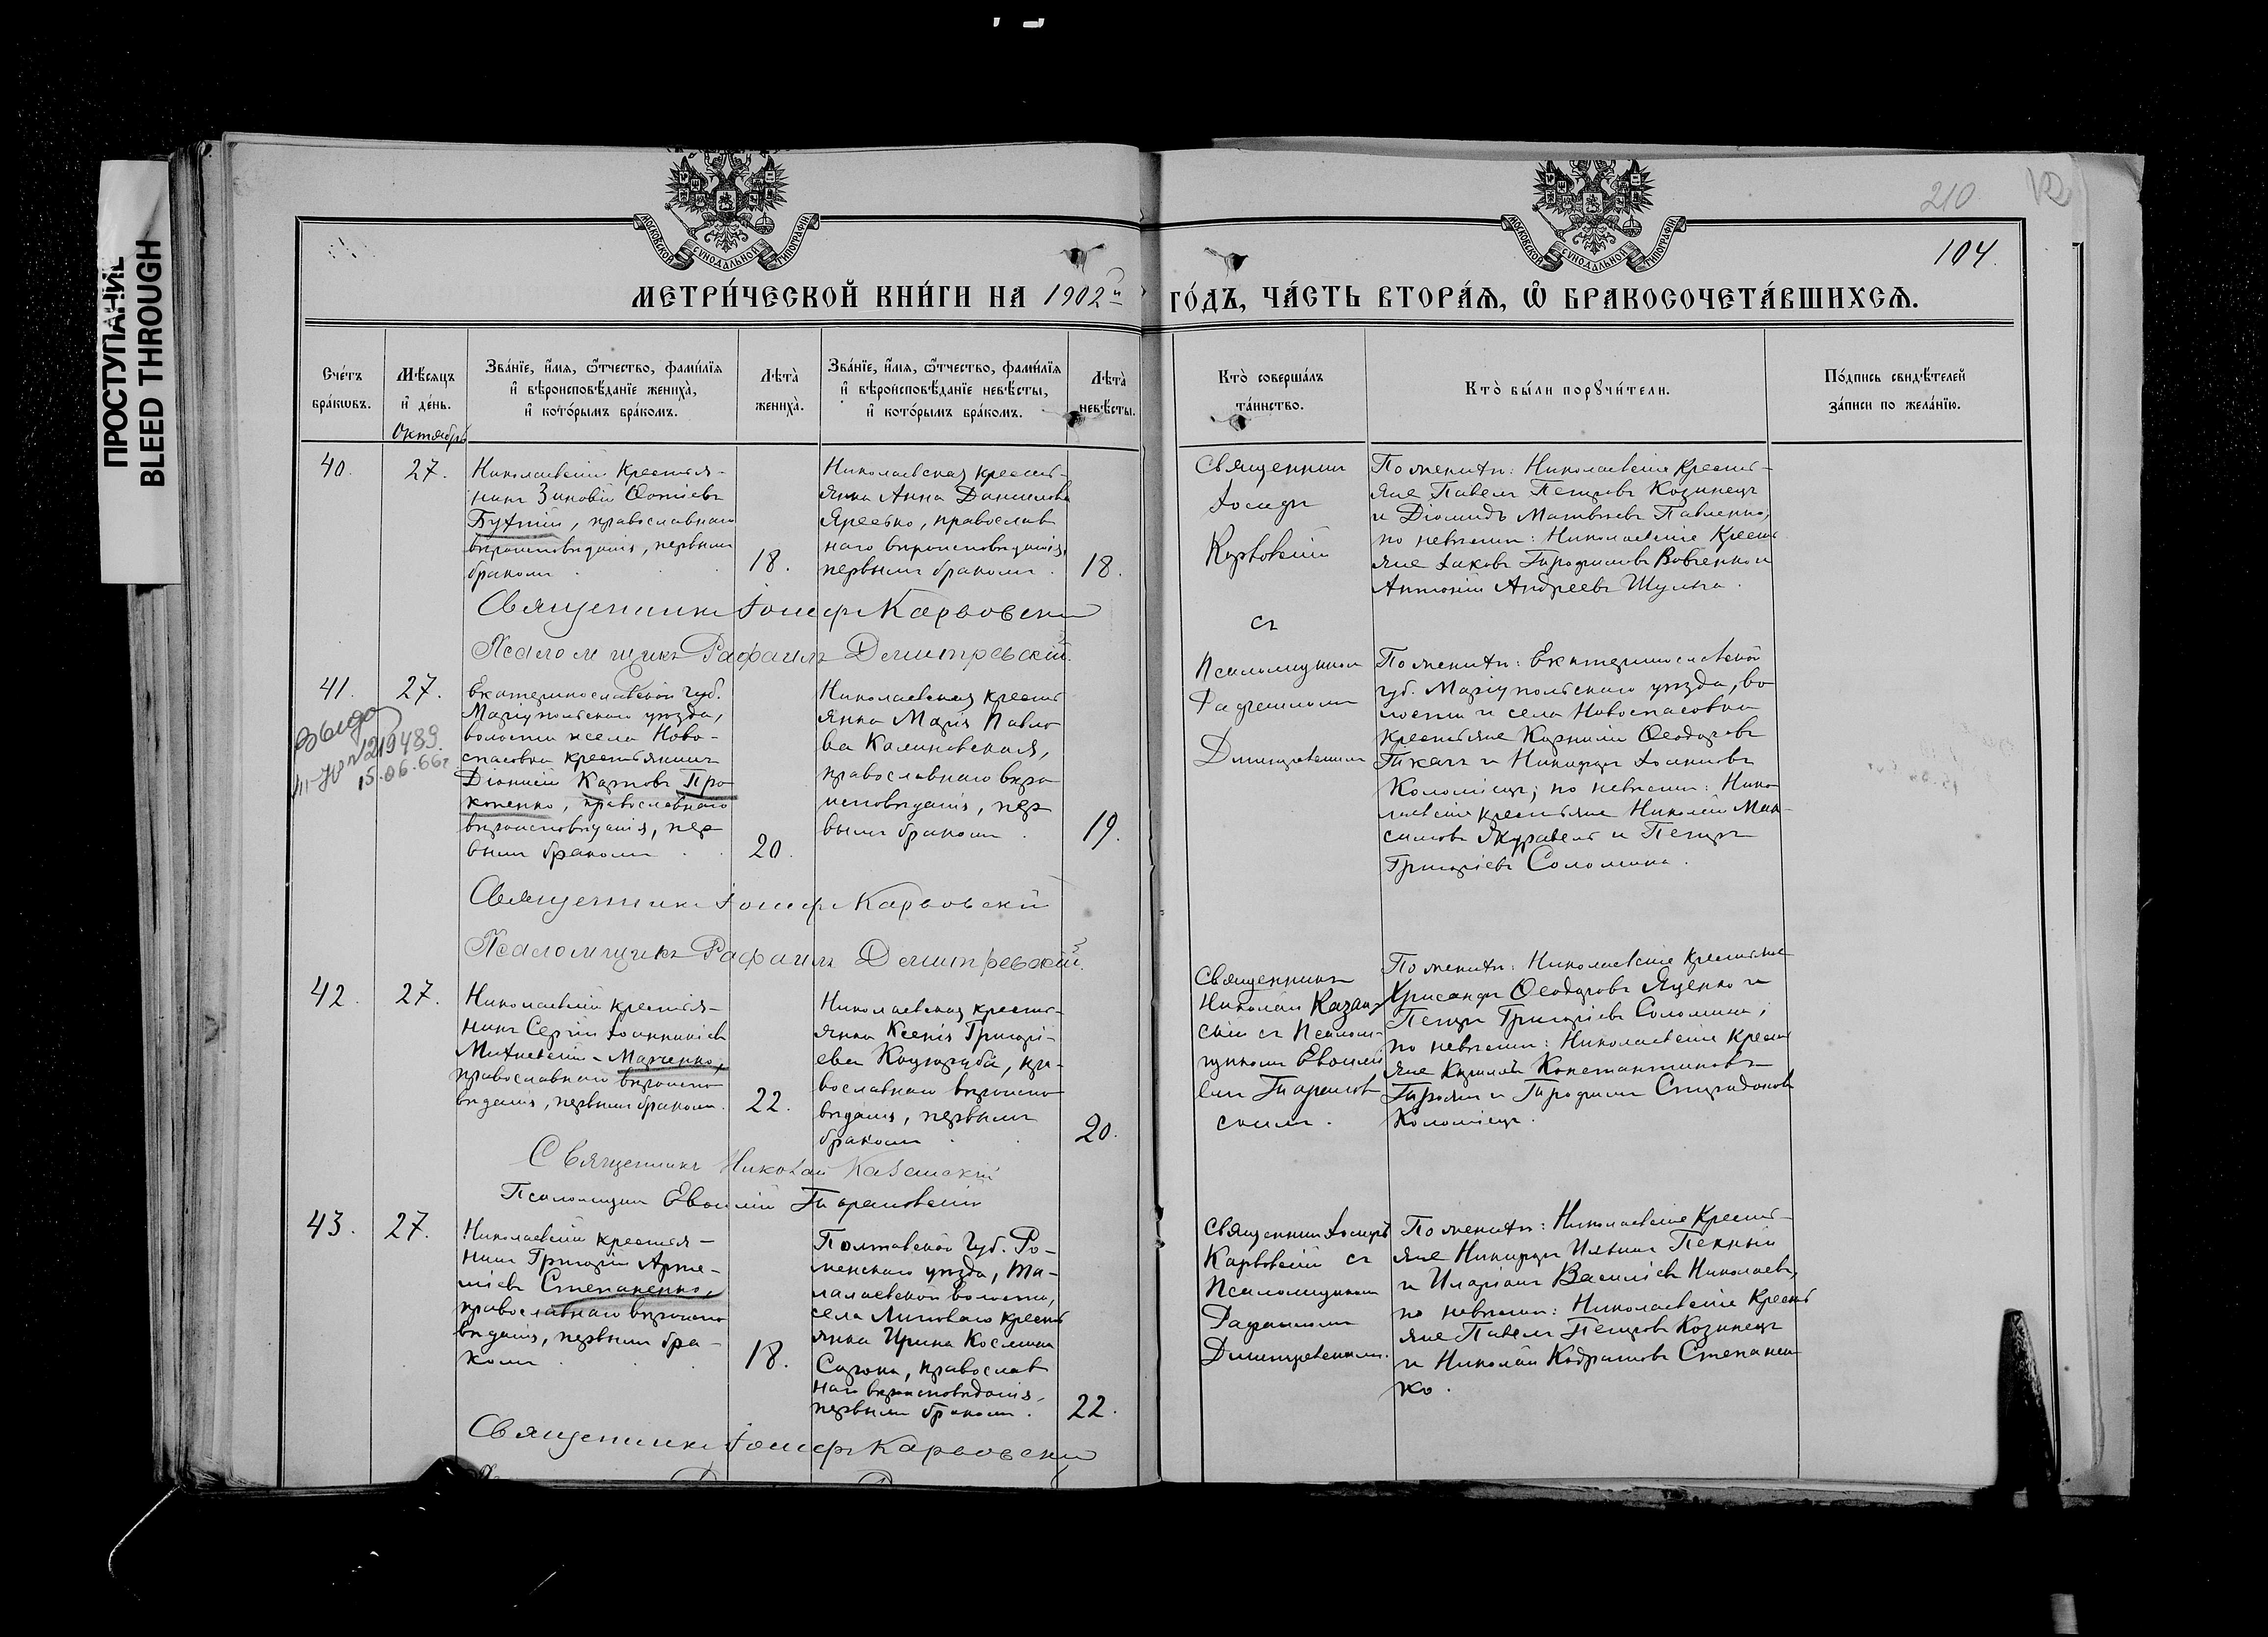 ПРОСТУПАНИЕ
BLEED THROUGH
МОСКОВСКОЙ СѴНОДАЛЬНОЙ ТИПОГРАФІИ
МОСКОВСКОЙ СѴНОДАЛЬНОЙ ТИПОГРАФІИ
210
104.
МЕТРИ́ЧЕСКОЙ КНИ́ГИ НА 1902й ГО́ДЪ, ЧА́СТЬ ВТОРА́Ѧ, Ѽ БРАКОСОЧЕТА́ВШИХСѦ.
Сче́тъ
бра́кѡвъ.
Мѣ́сяцъ
и҆ де́нь.
Октябрь
Зва́нїе, и҆́мя, ѻ҆́тчество, фами́лїя
и҆ вѣроисповѣ́данїе женихà,
и҆ кото́рымъ бра́комъ.
Лѣтà
женихà.
Зва́нїе, и҆́мя, ѻ҆́тчество, фами́лїя
и҆ вѣроисповѣ́данїе невѣ́сты,
и҆ кото́рымъ бра́комъ.
Лѣтà
невѣ́сты.
Кто̀ соверша́лъ
та́инство.
Кто̀ бы́ли порꙋчи́тели.
По́дпись свидѣ́телей
за́писи по жела́нїю.
40.
27.
Николаевскій крестья-
нинъ Зиновій Ѳотіевъ
православнаго
вѣроисповѣданія, первымъ
бракомъ
18.
Николаевская крестья-
янка Анна Даніилова
Яресько, православ
наго вѣроисповѣданія,
первымъ бракомъ.
18.
Священникъ
Іосифъ
Карвовскій
съ
Псаломщикомъ
Рафаиломъ
Димитревскимъ
По женихѣ: Николаевскіе крестья-
яне Павелъ Петровъ Козинецъ
и Діомидъ Матвѣевъ Павленко,
по невѣстѣ: Николаевскіе крестья
яне Іаковъ Трофимовъ Вовченко и
Антоній Андреевъ Шульга.
Священникъ Іосифъ Карвовскій
Псаломщикъ Рафаилъ Димитревскій.
41.
27.
№ 219489
15.06.66г.
Екатеринославской губ.
Маріупольскаго уѣзда,
волости и села Ново-
спасовки крестьянинъ
Діонисій Карповъ Про
копенко, православнаго
вѣроисповѣданія, пер
вымъ бракомъ
20.
Николаевская кресть
янка Марія Павло
ва Калиновская,
православнаго вѣро
исповѣданія, пер
вымъ бракомъ.
19.
По женихѣ: Екатеринославской
губ. Маріупольскаго уѣзда, во
лости и села Новоспасовки
крестьяне Корнилій Ѳеодоровъ
Ткачъ и Никифоръ Іоанновъ
Коломіецъ; по невѣстѣ: Нико
лаевскіе крестьяне Николай Мак-
симовъ Журавель и Петръ
Григоріевъ Соломка.
Священникъ Іосифъ Карвовскій
Псаломщикъ Рафаилъ Димитревскій.
42.
27.
Николаевскій крестья-
нинъ Сергій Іоанникіевъ
Михневскій-Марченко,
православнаго вѣроиспо
вѣданія, первымъ бракомъ.
22.
Николаевская кресть-
янка Ксенія Григорі-
ева Коцюруба, пра-
вославнаго вѣроиспо
вѣданія, первымъ
бракомъ
20.
Священникъ
Николай Казан-
скій съ Псалом-
щикомъ
Таранов
скимъ.
По женихѣ: Николаевскіе крестьяне
Хрисанфъ Ѳеодоровъ Яценко и
Петръ Григоріевъ Соломка;
по невѣстѣ: Николаевскіе кресть
яне Кириллъ Константиновъ
и Трофимъ Спиридоновъ
Коломіецъ.
Священникъ Николай Казанскій
Псаломщикъ Тарановскій
43.
27.
Николаевскій крестья-
нинъ Григорій Арте-
міевъ Степаненко,
православнаго вѣроиспо
вѣданія, первымъ бра-
комъ
18.
Полтавской губ. Ро-
менскаго уѣзда, Та-
лалаевской волости,
села Липоваго кресть
янка Ирина Космина
православ
наго вѣроисповѣданія,
первымъ бракомъ.
22.
Священникъ Іосифъ
Карвовскій съ
Псаломщикомъ
Рафаиломъ
Димитревскимъ.
По женихѣ: Николаевскіе кресть-
яне Никифоръ Ильинъ Пенный
и Иларіонъ Василіевъ Николаевъ,
по невѣстѣ: Николаевскіе кресть
яне Павелъ Петровъ Козинецъ
и Николай Кодратовъ Степанен
ко.
Священникъ Іосифъ Карвовскій